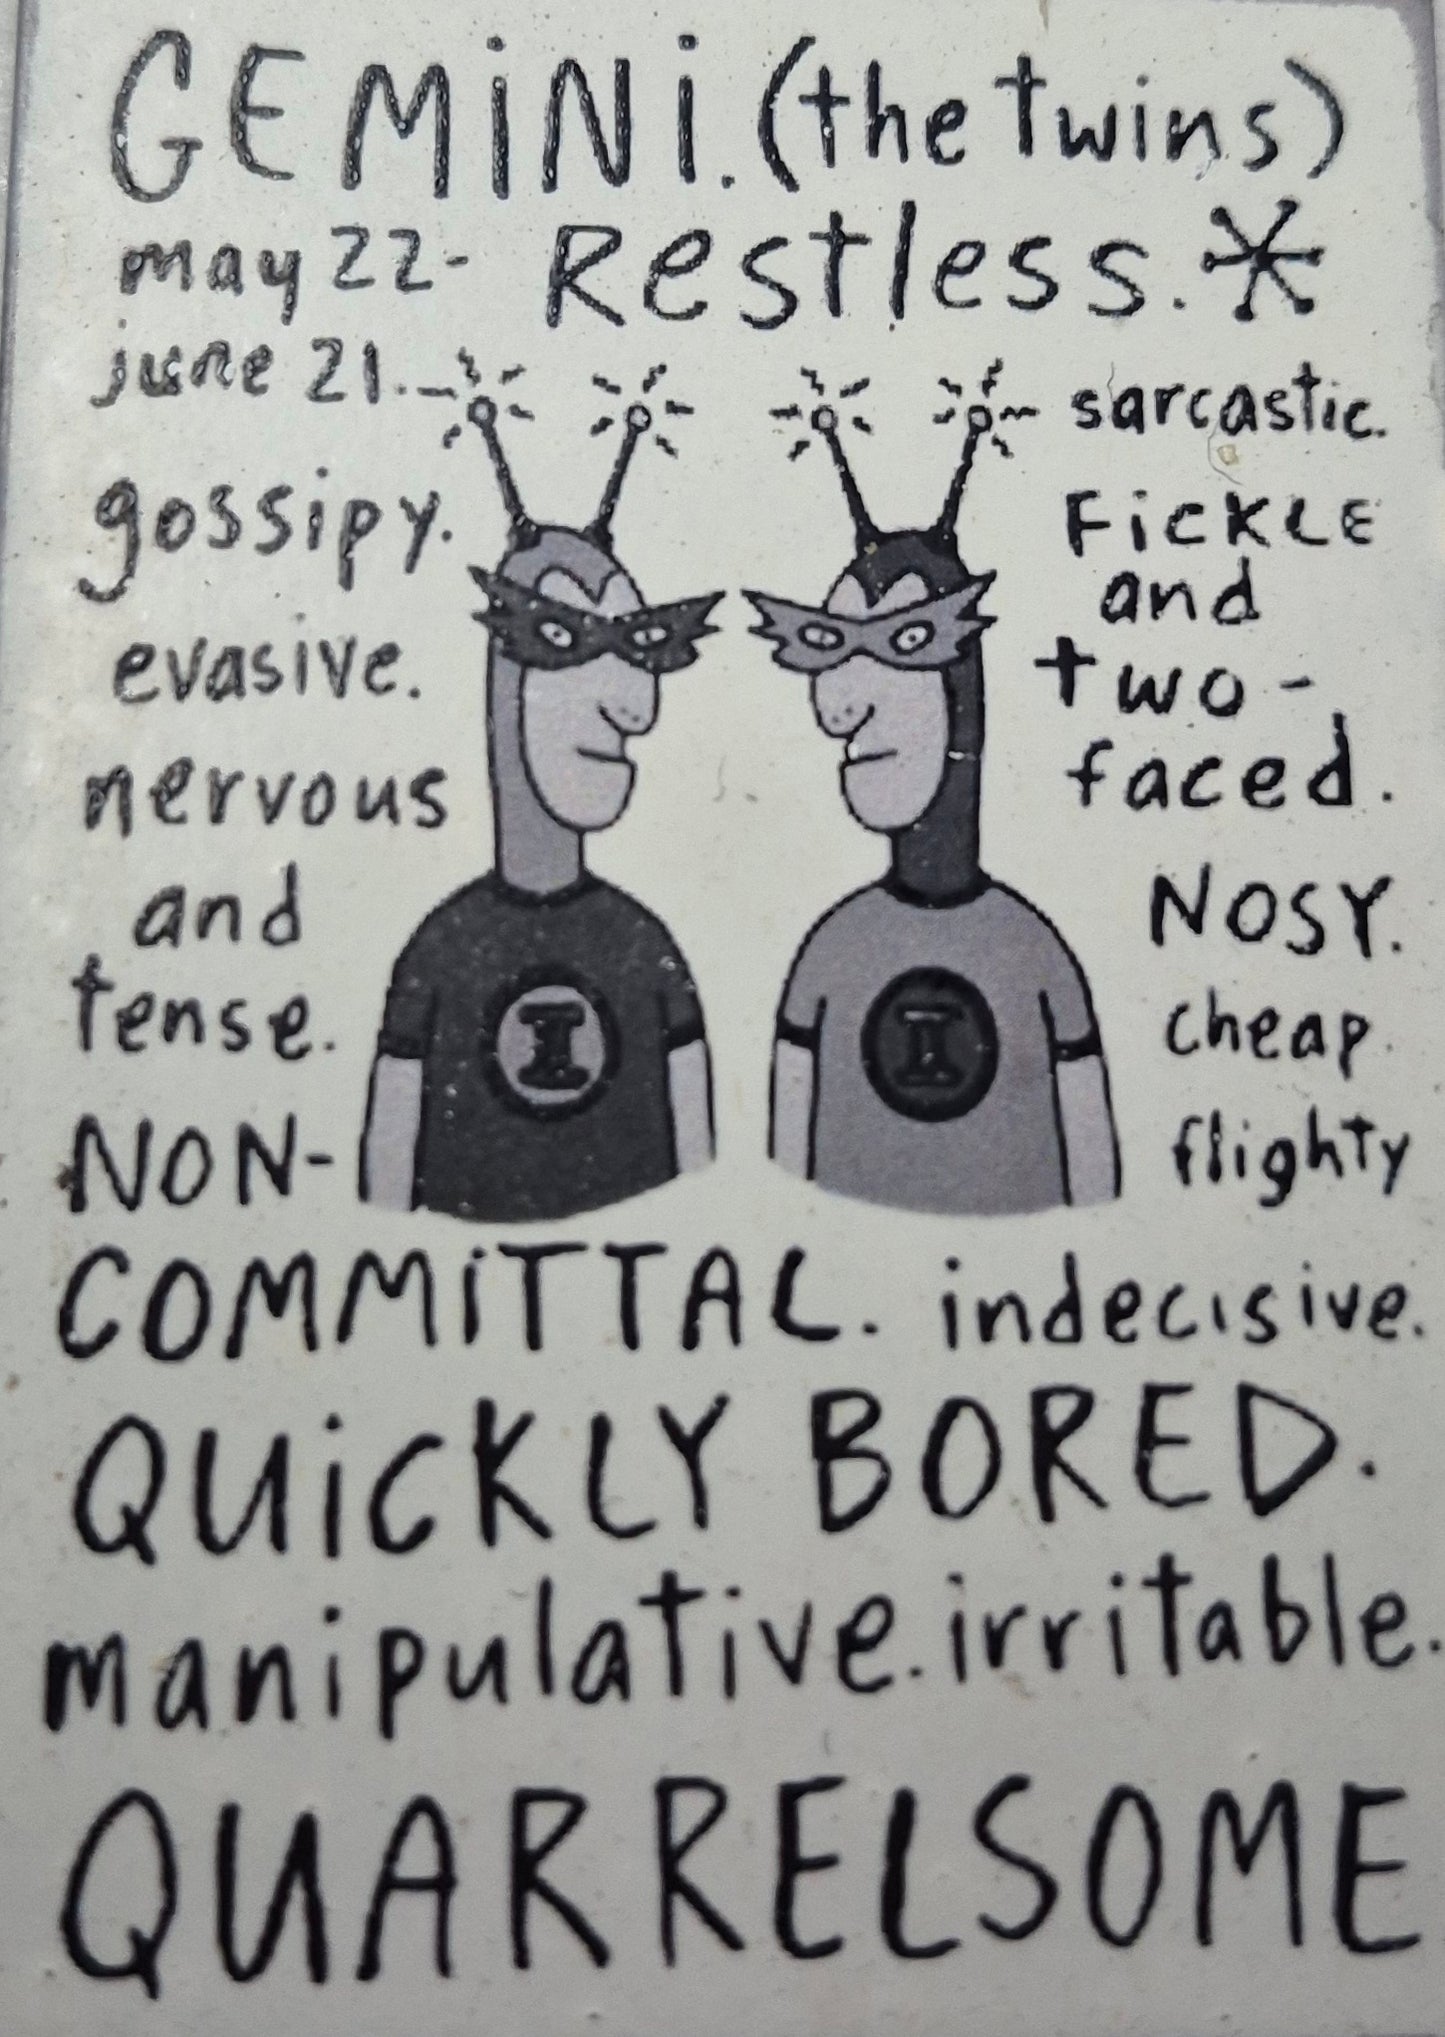 GEMiNi. (the twins)
may 22-
june 21.
Restless.
gossipy.
evasive.
nervous
and
tense.
NON-
COMMiTTAL. indecisive.
sarcastic.
FiCKLE
and
two-
faced.
NOSY.
cheap.
flighty
I
I
QUiCKLY BORED.
manipulative. irritable.
QUARRELSOME